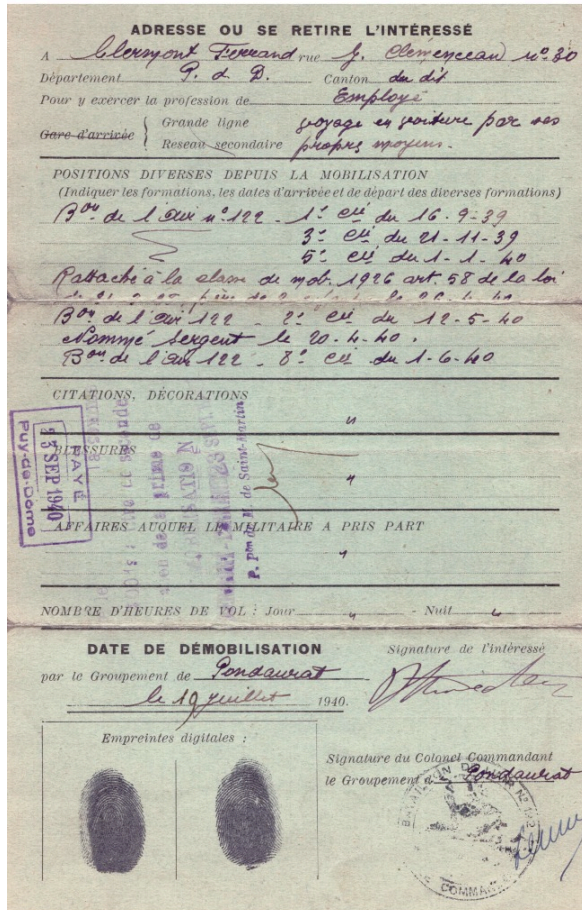 ADRESSE OU SE RETIRE L'INTÉRESSÉ
A Clermont Ferrand rue G. Clemenceau nº 30
Département P. d D. Canton du dit
Pour y exercer la profession de Employé
Gare d'arrivée { Grande ligne voyage en voiture par ses
Reseau secondaire propres moyens.
POSITIONS DIVERSES DEPUIS LA MOBILISATION
(Indiquer les formations, les dates d'arrivée et de départ des diverses formations)
Bon de l'Air nº 122 - 1e Cie du 16-9-39
3e Cie du 21-11-39
5e Cie du 1-1-40
Rattaché à la classe de mob. 1926 art. 58 de la loi
Bon de l'Air 122 - 2e Cie du 12-5-40
Nommé Sergent le 20-4-40.
Bon de l'Air 122 - 8e Cie du 1-6-40
CITATIONS, DÉCORATIONS
BLESSURES
AFFAIRES AUQUEL LE MILITAIRE A PRIS PART
NOMBRE D'HEURES DE VOL : Jour - Nuit
PAYÉ
23 SEP 1940
Puy-de-Dôme
prime de
P. Pon du M. de Saint-Martin
DATE DE DÉMOBILISATION
par le Groupement de Pondaurat
le 19 juillet 1940.
Signature de l'intéressé
Empreintes digitales :
Signature du Colonel Commandant
le Groupement Pondaurat
BATAILLON DE L'AIR Nº 122
COMMAND